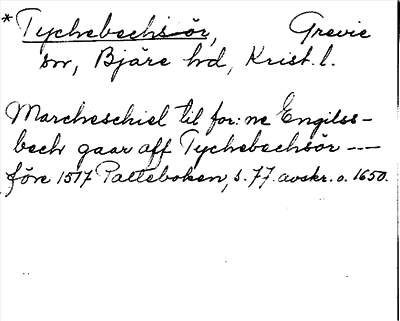 *Tychebechs-ör, Grevie
sn, Bjäre hd, Krist. l.
Marcheschiel til for: ne Engilss-
bech gaar aff Tychebechsör ---
före 1517 Palteboken, s. 77. avskr. o. 1650.